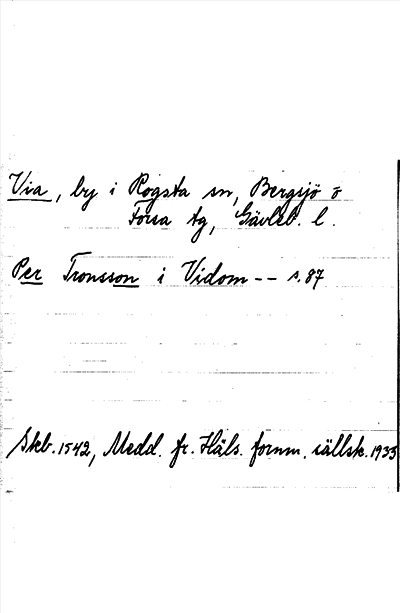 Via, by i Rogsta sn, Bergsjö o
Forsa tg, Gävleb. l.
Per Tronsson i Vidom -- s. 87
Skb. 1542, Medd. fr. Häls. fornm. sällsk. 1933